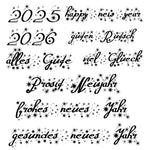 2025 happy new year
2026 guten Rutsch
alles Gute viel Glück
Prosit Neujahr
frohes neues Jahr
gesundes neues Jahr